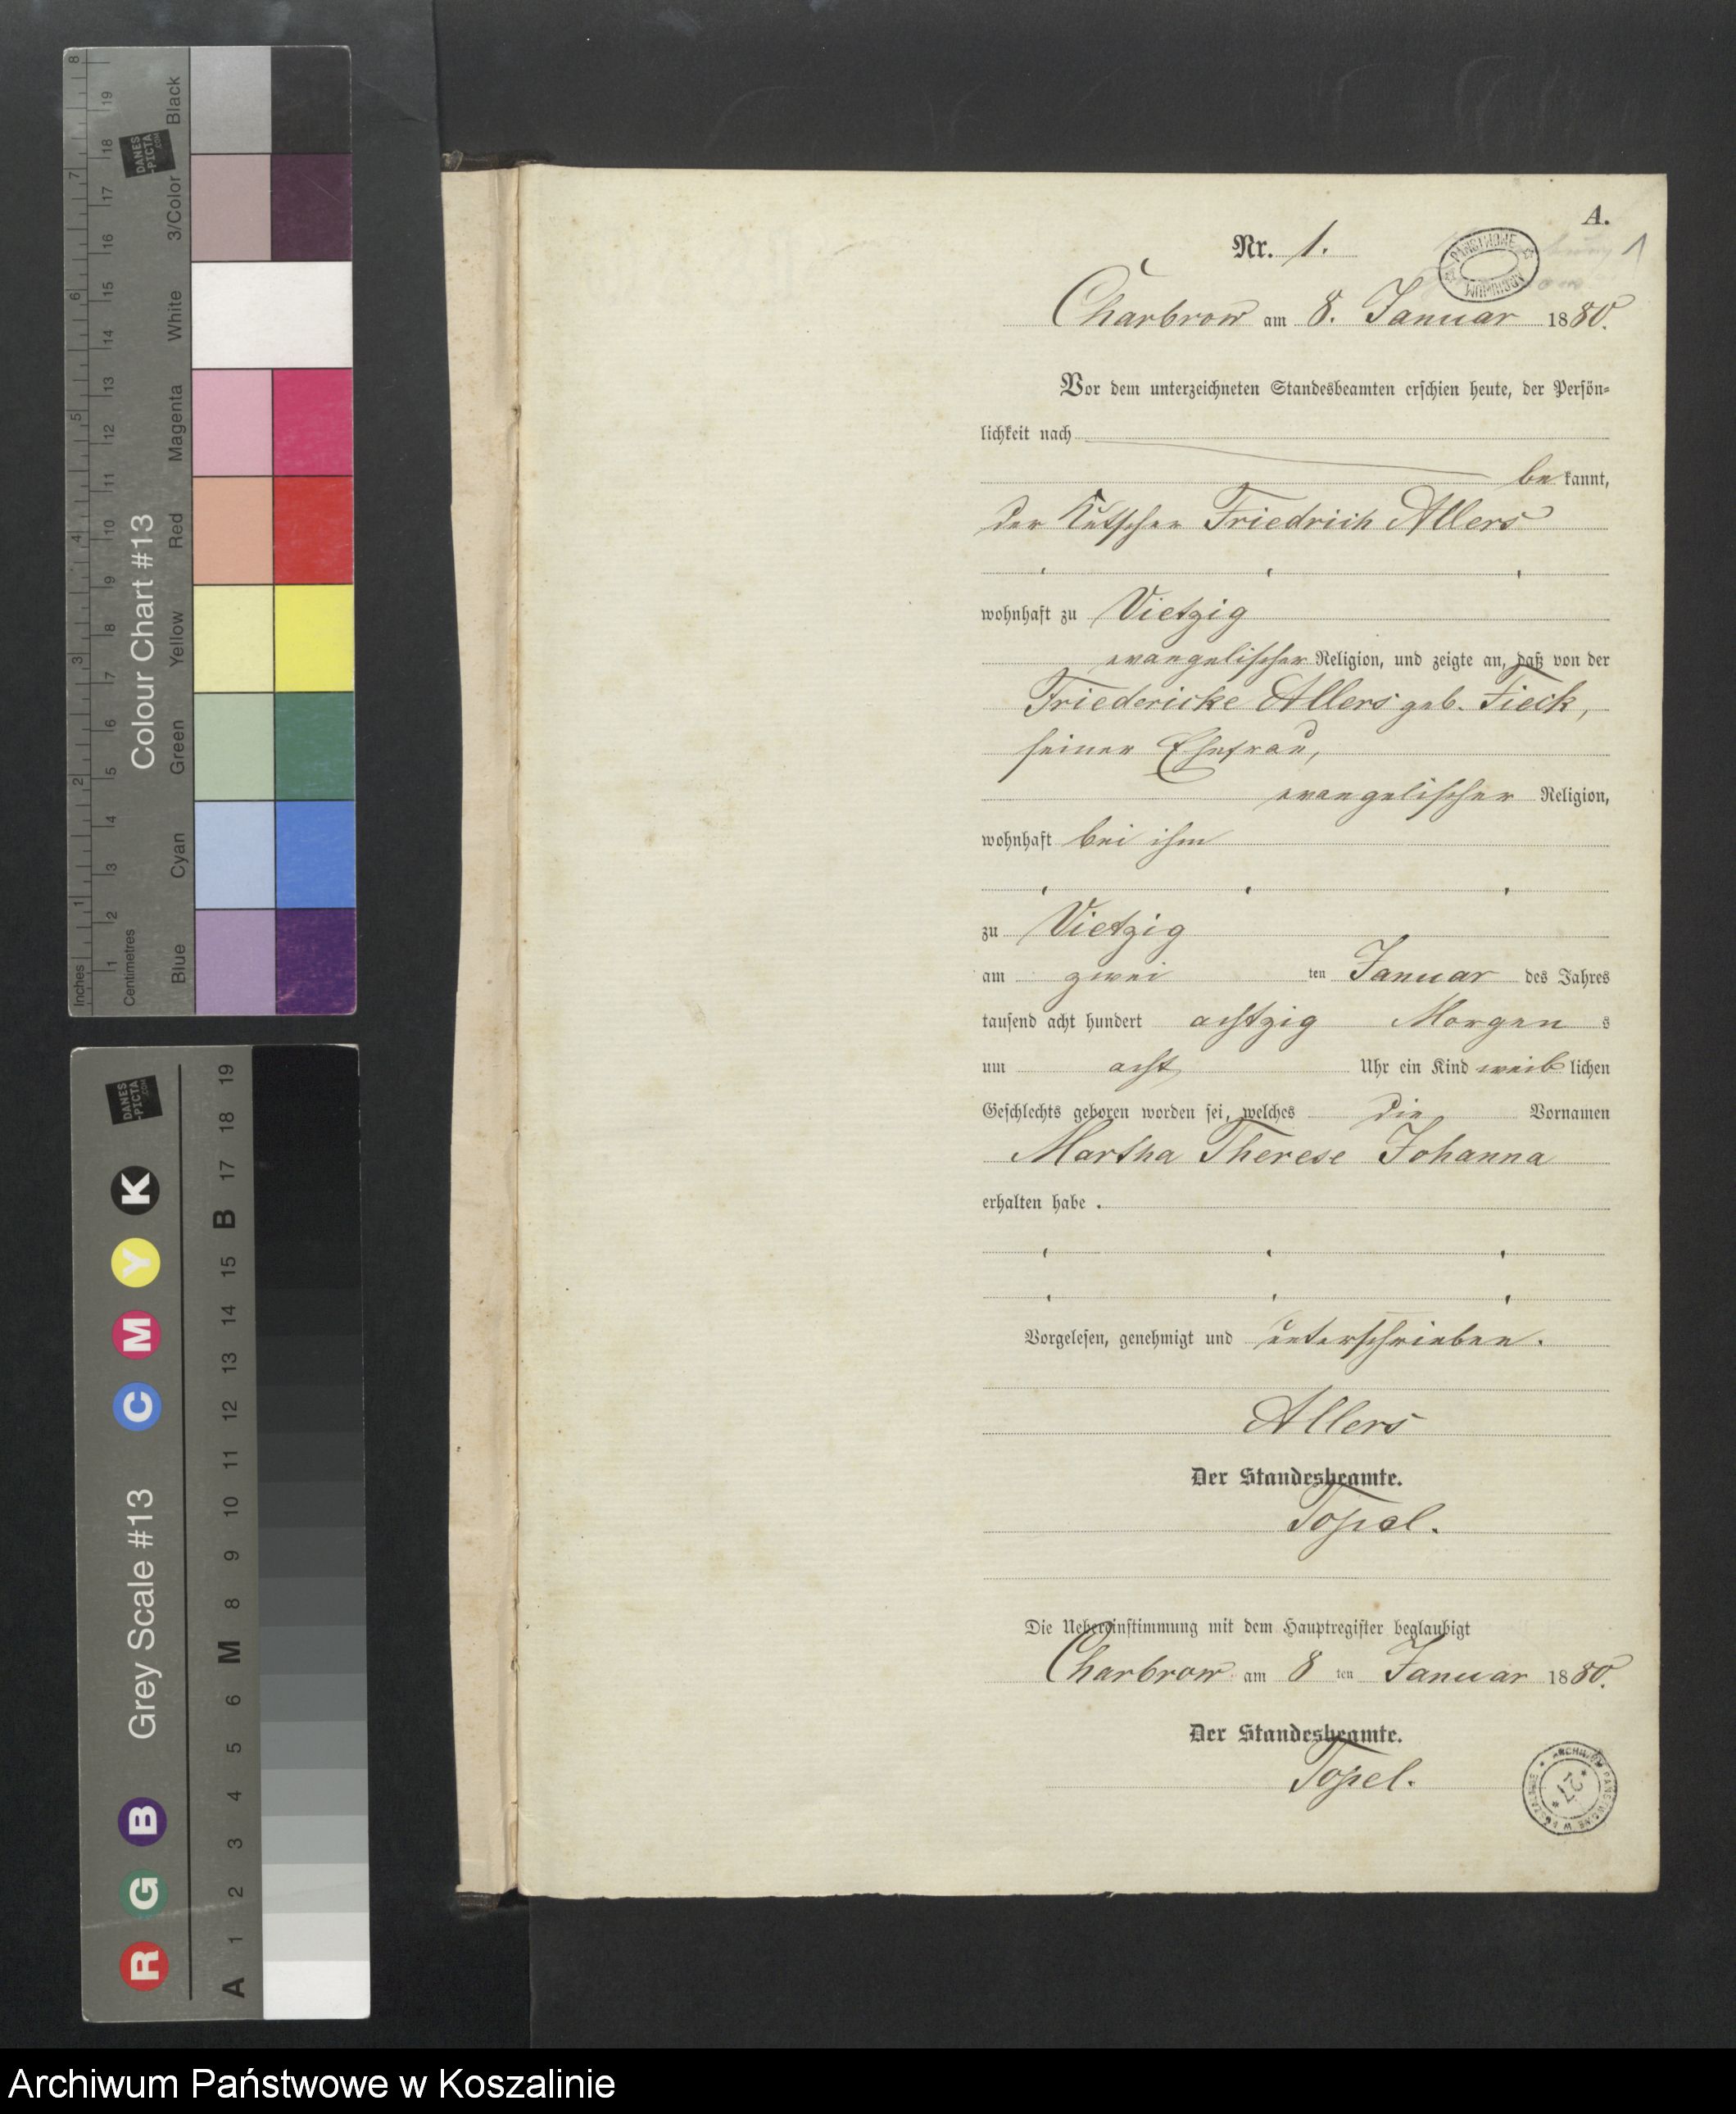 A.
Nr. 1.
1
Charbrow am 8. Januar 1880.
Vor dem unterzeichneten Standesbeamten erschien heute, der Persön-
lichkeit nach
bekannt,
der Kutscher Friedrich Allers
wohnhaft zu Vietzig
evangelischer Religion, und zeigte an, daß von der
Friedericke Allers geb. Fieck,
seiner Ehefrau,
evangelischer Religion,
wohnhaft bei ihm
zu Vietzig
am zwei ten Januar des Jahres
tausend acht hundert achtzig Morgen s
um acht Uhr ein Kind weiblichen
Geschlechts geboren worden sei, welches die Vornamen
Martha Therese Johanna
erhalten habe.
Vorgelesen, genehmigt und unterschrieben.
Allers
Der Standesbeamte.
Topel.
Die Uebereinstimmung mit dem Hauptregister beglaubigt
Charbrow am 8 ten Januar 1880.
Der Standesbeamte.
Topel.
ARCHIWUM PAŃSTWOWE W KOSZALINIE
27
Colour Chart #13
DANES-PICTA.COM
Inches 1 2 3 4 5 6 7 8
Centimetres 1 2 3 4 5 6 7 8 9 10 11 12 13 14 15 16 17 18 19
Blue Cyan Green Yellow Red Magenta White 3/Color Black
Grey Scale #13
DANES-PICTA.COM
R G B C M Y K
A 1 2 3 4 5 6 M 8 9 10 11 12 13 14 15 B 17 18 19
Archiwum Państwowe w Koszalinie